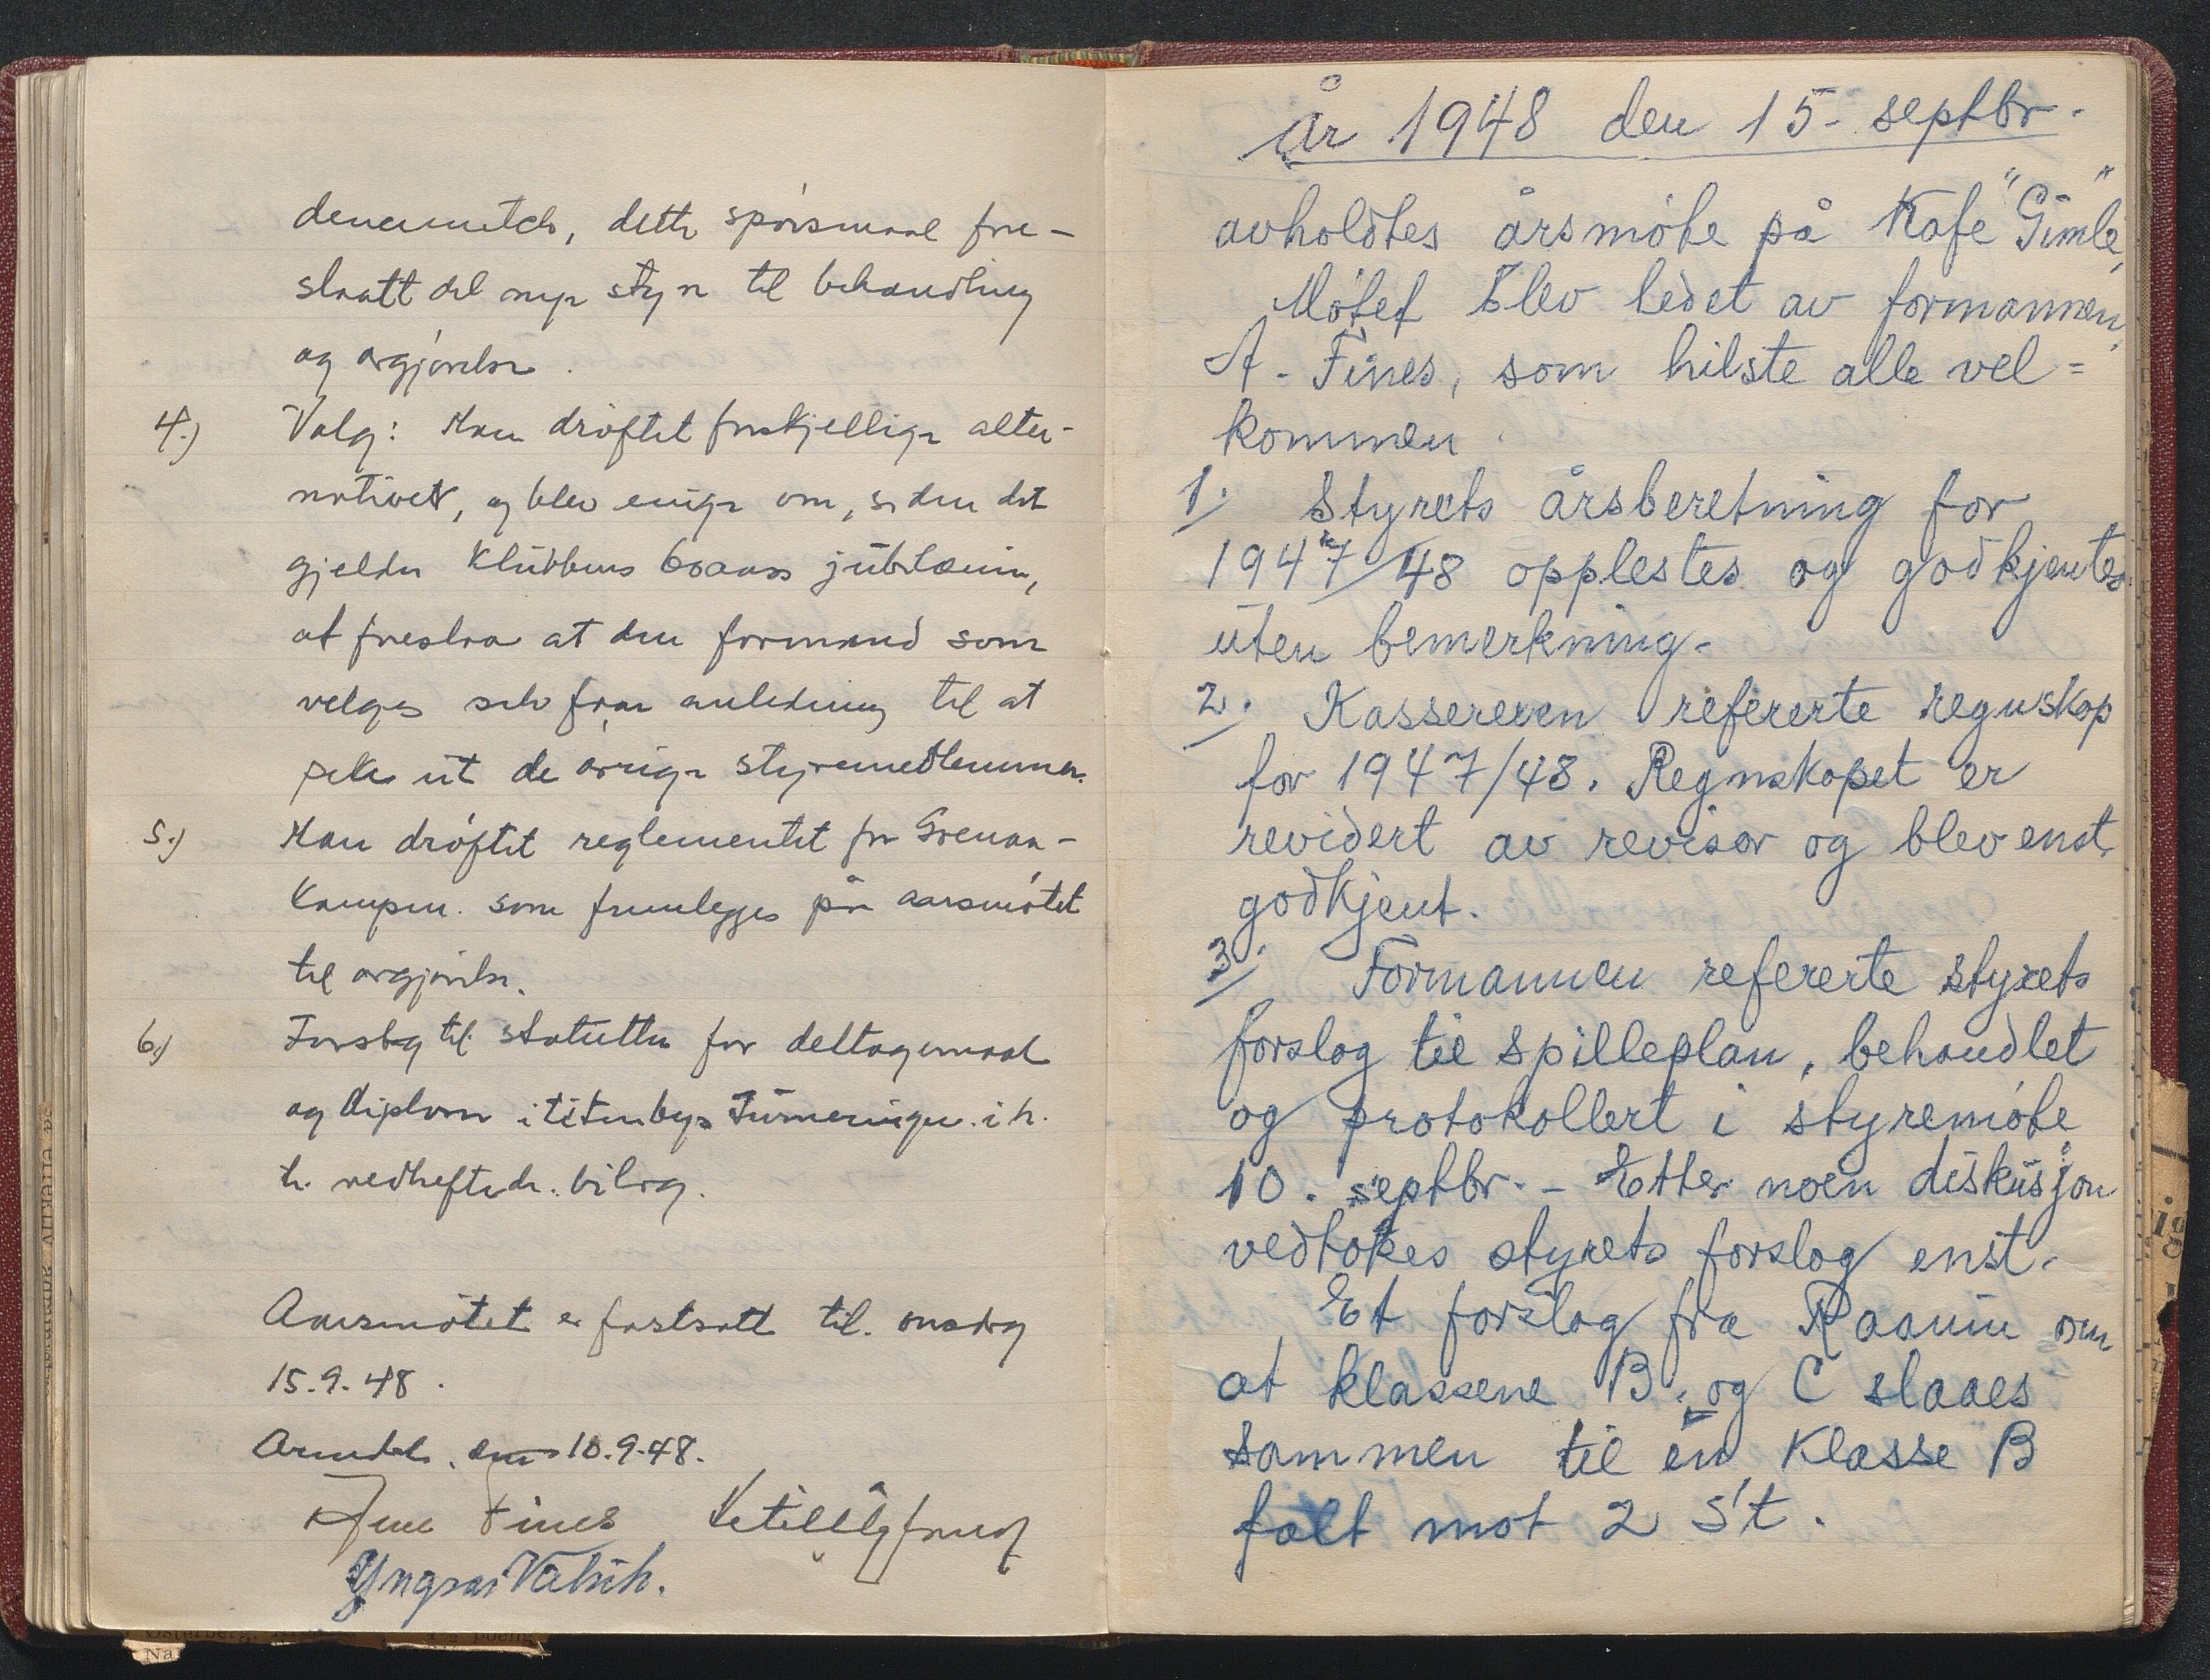 dette spørsmaal fore-
slaatt det nye styre til behandling
og avgjørelse.
4.) Valg: Man drøftet forskjellige alter-
nativer, og blev enige om, siden det
gjelder Klubbens 60aars jubilæum,
at foreslaa at den formand som
velges selv faar anledning til at
peke ut de øvrige styremedlemmer.
5.) Man drøftet reglementet for Grenaa-
Kampen. som fremlegges på aarsmøtet
til avgjørelse.
6.) Forslag til statutter for deltagernaal
og diplom i Turneringer. i h.
t. vedheftede. bilag.
Aarsmøtet er fastsatt til. onsdag
15.9.48.
Arendal. den 10.9.48.
Arne Fines
Yngvar
År 1948 den 15. septbr.
avholdtes årsmøte på Kafe "Gimle"
Møtet blev ledet av formannen,
A. Fines, som hilste alle vel=
kommen.
1. Styrets årsberetning for
1947/48 opplestes og godkjentes
uten bemerkning.
2. Kassereren refererte regnskap
for 1947/48. Regnskapet er
revidert av revisor og blev enst.
godkjent.
3. Formannen refererte styrets
forslag til spilleplan, behandlet
og protokollert i styremøte
10. septbr. - Etter noen diskusjon
vedtokes styrets forslag enst.
Et forslag fra Raanum om
at klassene B. og C slaaes
sammen til én Klasse B
falt mot 2 St.